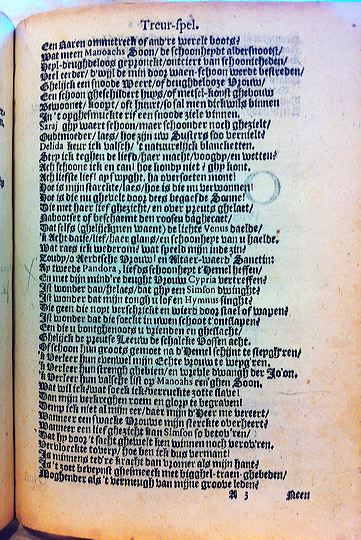 Treur-spel.
Een Karen onmietreck of and're werelt boots?
Wat meen Manoachs Soon/ de schoonheydt aldersnoost/
Heyl-deughdeloos gepronckt/ ontciert van schoonicheden/
Veel eerder/ d'wijl de min door waen-schoon werdt bestreden/
Ghelijck een snoode Peert/ of deughdelooze Vrouw/
Een schoon gheschildert huys/ of nietsel-konst ghebouw
Bewoonet/ koopt/ oft huurt/ so sal men dickwils binnen
In 't opghesmuckte rif een snoode ziele vinnen.
Saraj ghy waert schoon/ maer schoonder noch gheziele/
Oudtmoeder/ laes/ hoe zijn uw Susters soo vernielt?
Delida keur ick valsch/ 't natuurelijck blancketten.
Stey ick teghen de liefd/ haer macht/ voogdy/ en wetten?
Ach schoone ick en can! hoe kondy niet? ghy kont.
Ach liefste lief! ay! swyght. ha overfoeten mont!
Hoe is mijn starckte/ laes/ hoe is die nu verwonnen!
Hoe is die nu ghevelt door dees begaefde Sonne!
Die met haer lief ghezicht/ en over preuts ghelaet/
Nabootser of beschaemt den roosen daghgeraet/
Dat selfs (ghelijck men waent) de lichte Venus daelde/
'k Acht datse/ lief/ haer glans/ en schoonheyt van u haelde.
Wat raes ick wederom? wat speeld mijn inde zin?
Zoudy/ o Aerdtsche Vrouw! en Altaer-waerd Sanctin:
Ay tweede Pandora, liefds schoonheyt t'Hemel heffen/
En met dijn mind're deught Vrouw Cypria vertreffen?
Ist wonder dan/ helaes/ dat ghy een Simson dwinght?
Ist wonder dat mijn tongh u lof en Hymnus singht?
Die geen die nopt verschrickt en wierd door stael of wapen?
Ist wonder dat die soeckt in uwen schoot t'ontslapen?
En die u bontghenoots u vrienden en gheslacht/
Ghelijck de preutse Leeuw de schalcke Vossen acht.
Of schoon hun groots gemoet na d'Hemel schijnt te steygh'ren/
'k Verleer hun evenwel mijn Echte vrouw te weyg'ren.
'k Verleer hun strengh ghebien/ en vreble dwangh der Jo'on.
'k Verleer hun valsche list op Manoahs een'ghen Soon.
Wat wil ick/ wat soeck ick/ verruckte zotte slave?
Dan mijn verkreghen roem en glory te begraven!
Demp ick niet al mijn eer/ daer mijn d'Heer me vereert/
Wanneer een swacke Vrouwe mijn sterckte overheert?
Wanneer een lief ghezicht kan Simson so betov'ren/
Dat hy door 't sacht ghewelt ken winnen noch verov'ren.
Verdloeckte towery/ hoe ben ick dus vermant!
Is minnens ted're kracht dan vromer als mijn hant?
Is 't zoet bevepnst ghesmeeck met bigghel-traen-ghebeden/
Moghender als 't vermeugh van mijne groove leden?
A 3
Neen